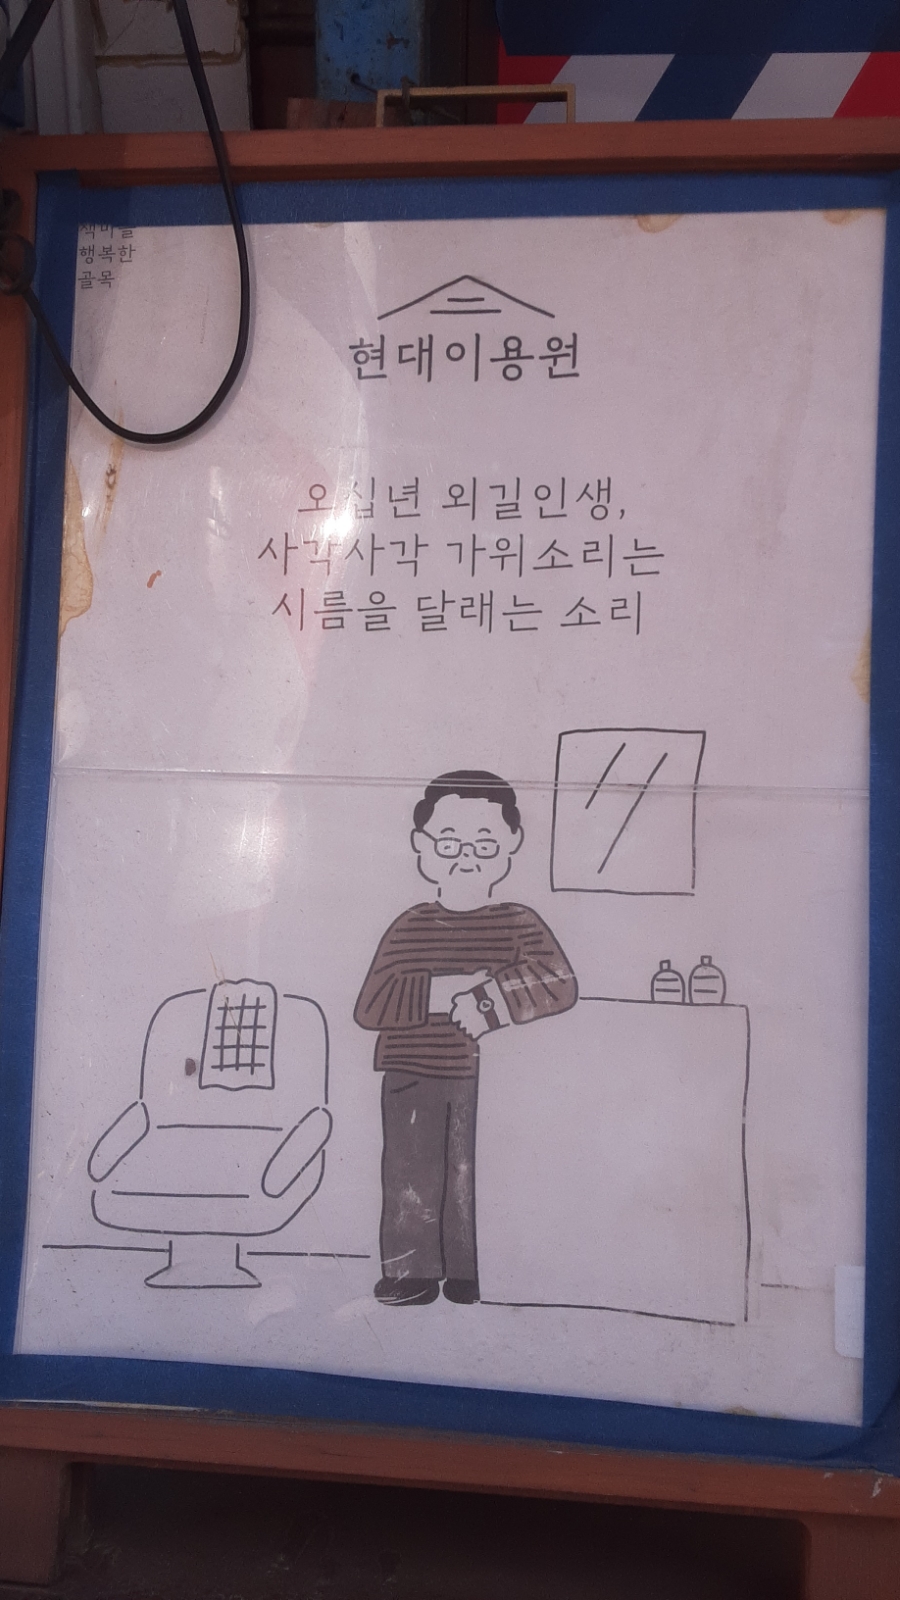 행복한
골목
현대이용원
오십년 외길인생,
사각사각 가위소리는
시름을 달래는 소리